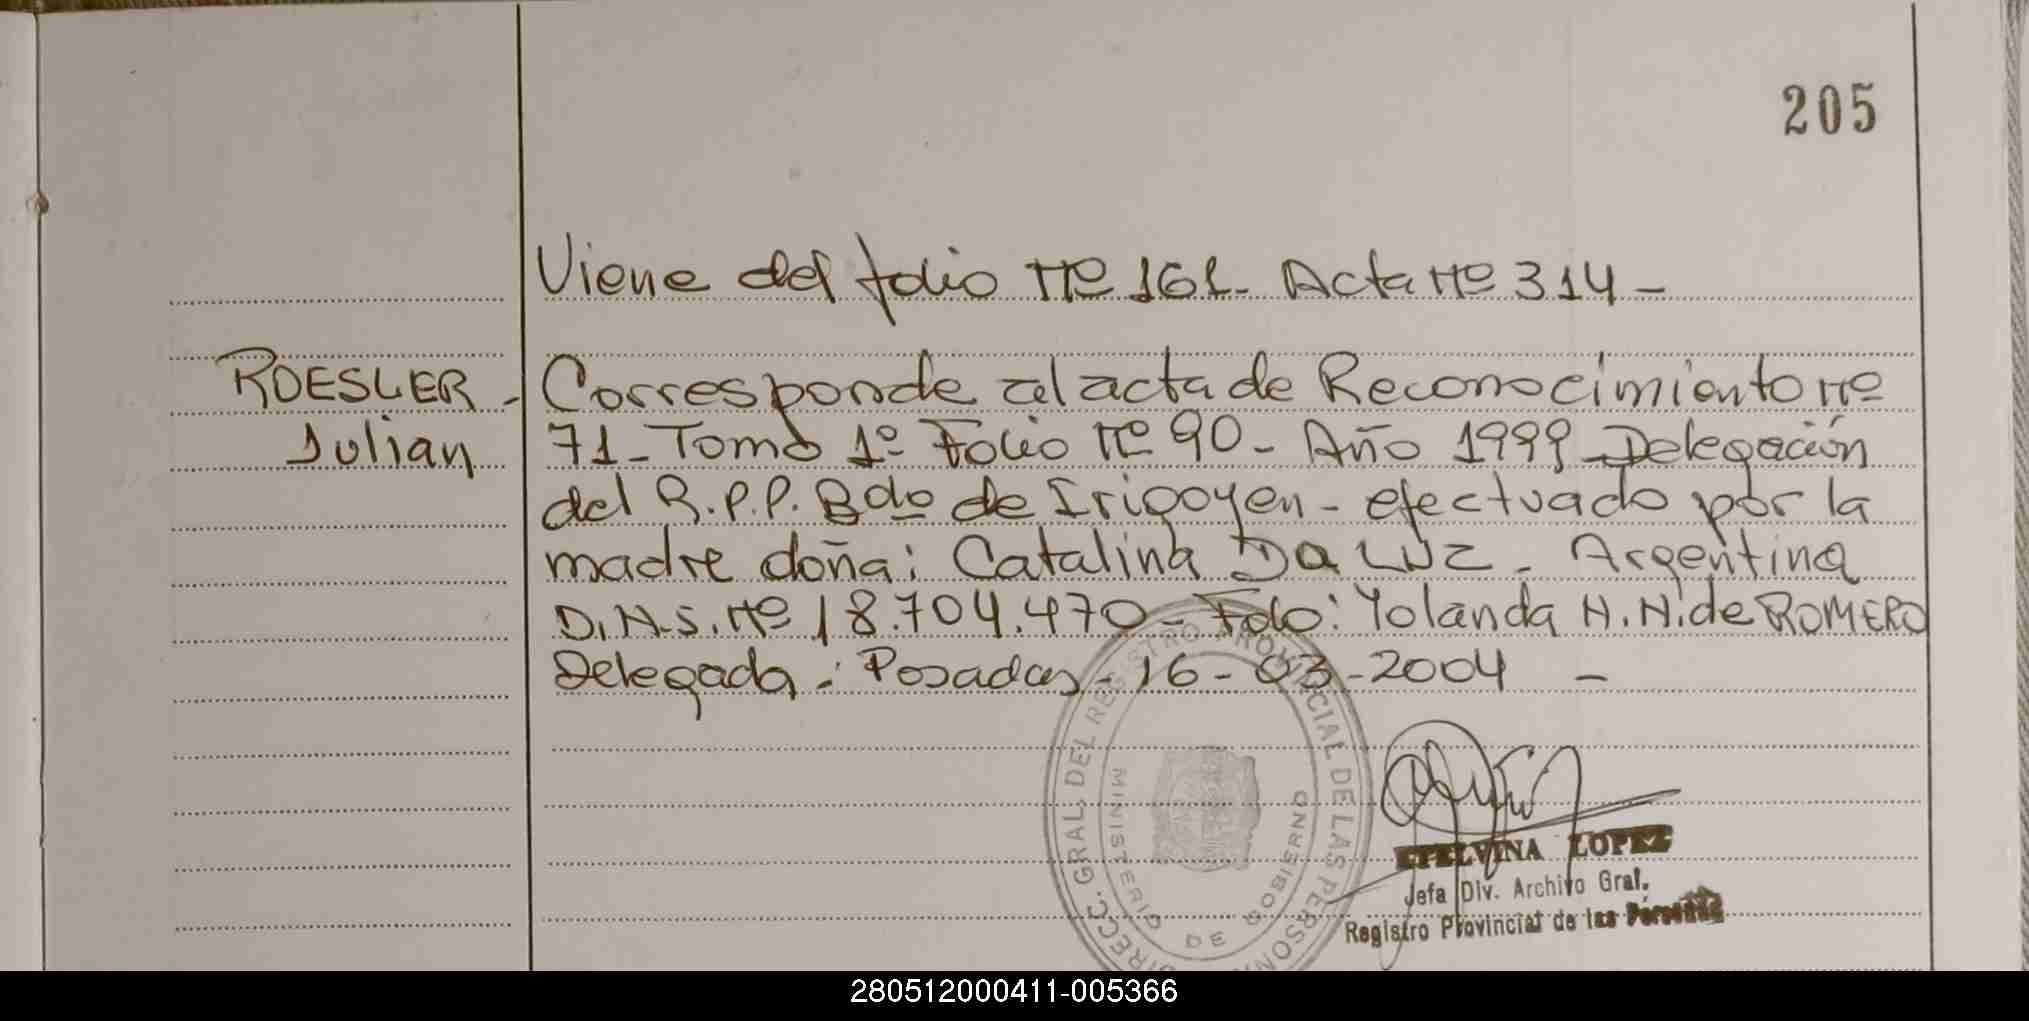 205
Viene del folio Nº 161- Acta Nº 314-
ROESLER - Corresponde al acta de Reconocimiento Nº
Julian 71- Tomo 1º Folio Nº 90- Año 1999 - Delegación
del R.P.P. Bdo de Irigoyen - efectuado por la
madre doña: Catalina Da Luz - Argentina
D.N.I. Nº 18.704.470- Fdo: Yolanda N. N. de ROMERO
Delegada: Posadas - 16-03-2004 -
DIRECC. GRAL. DEL REGISTRO PROVINCIAL DE LAS PERSONA
MINISTERIO DE GOBIERNO
ETELVINA LOPEZ
Jefa Div. Archivo Gral.
Registro Provincial de las Personas
280512000411-005366